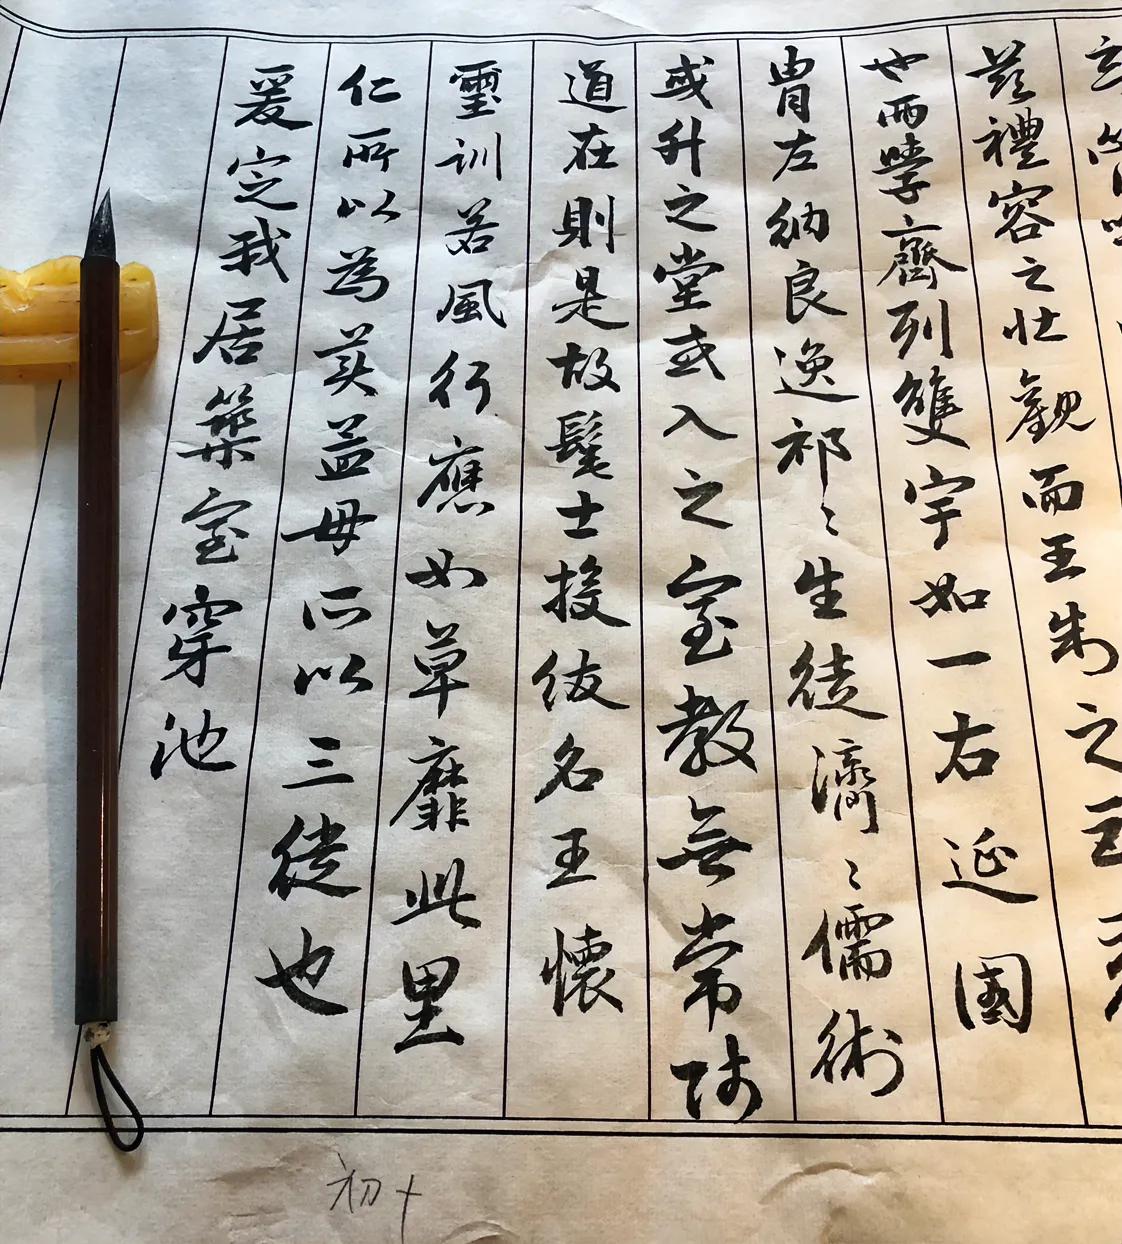 茲禮容之壯觀而王制之巨
也兩學齊列雙宇如一右延國
胄左納良逸祁〻生徒濟〻儒術
或升之堂或入之室教無常師
道在則是故髦士投紱名王懷
璽訓若風行應如草靡此里
仁所以為美孟母所以三徙也
爰定我居築室穿池
初十